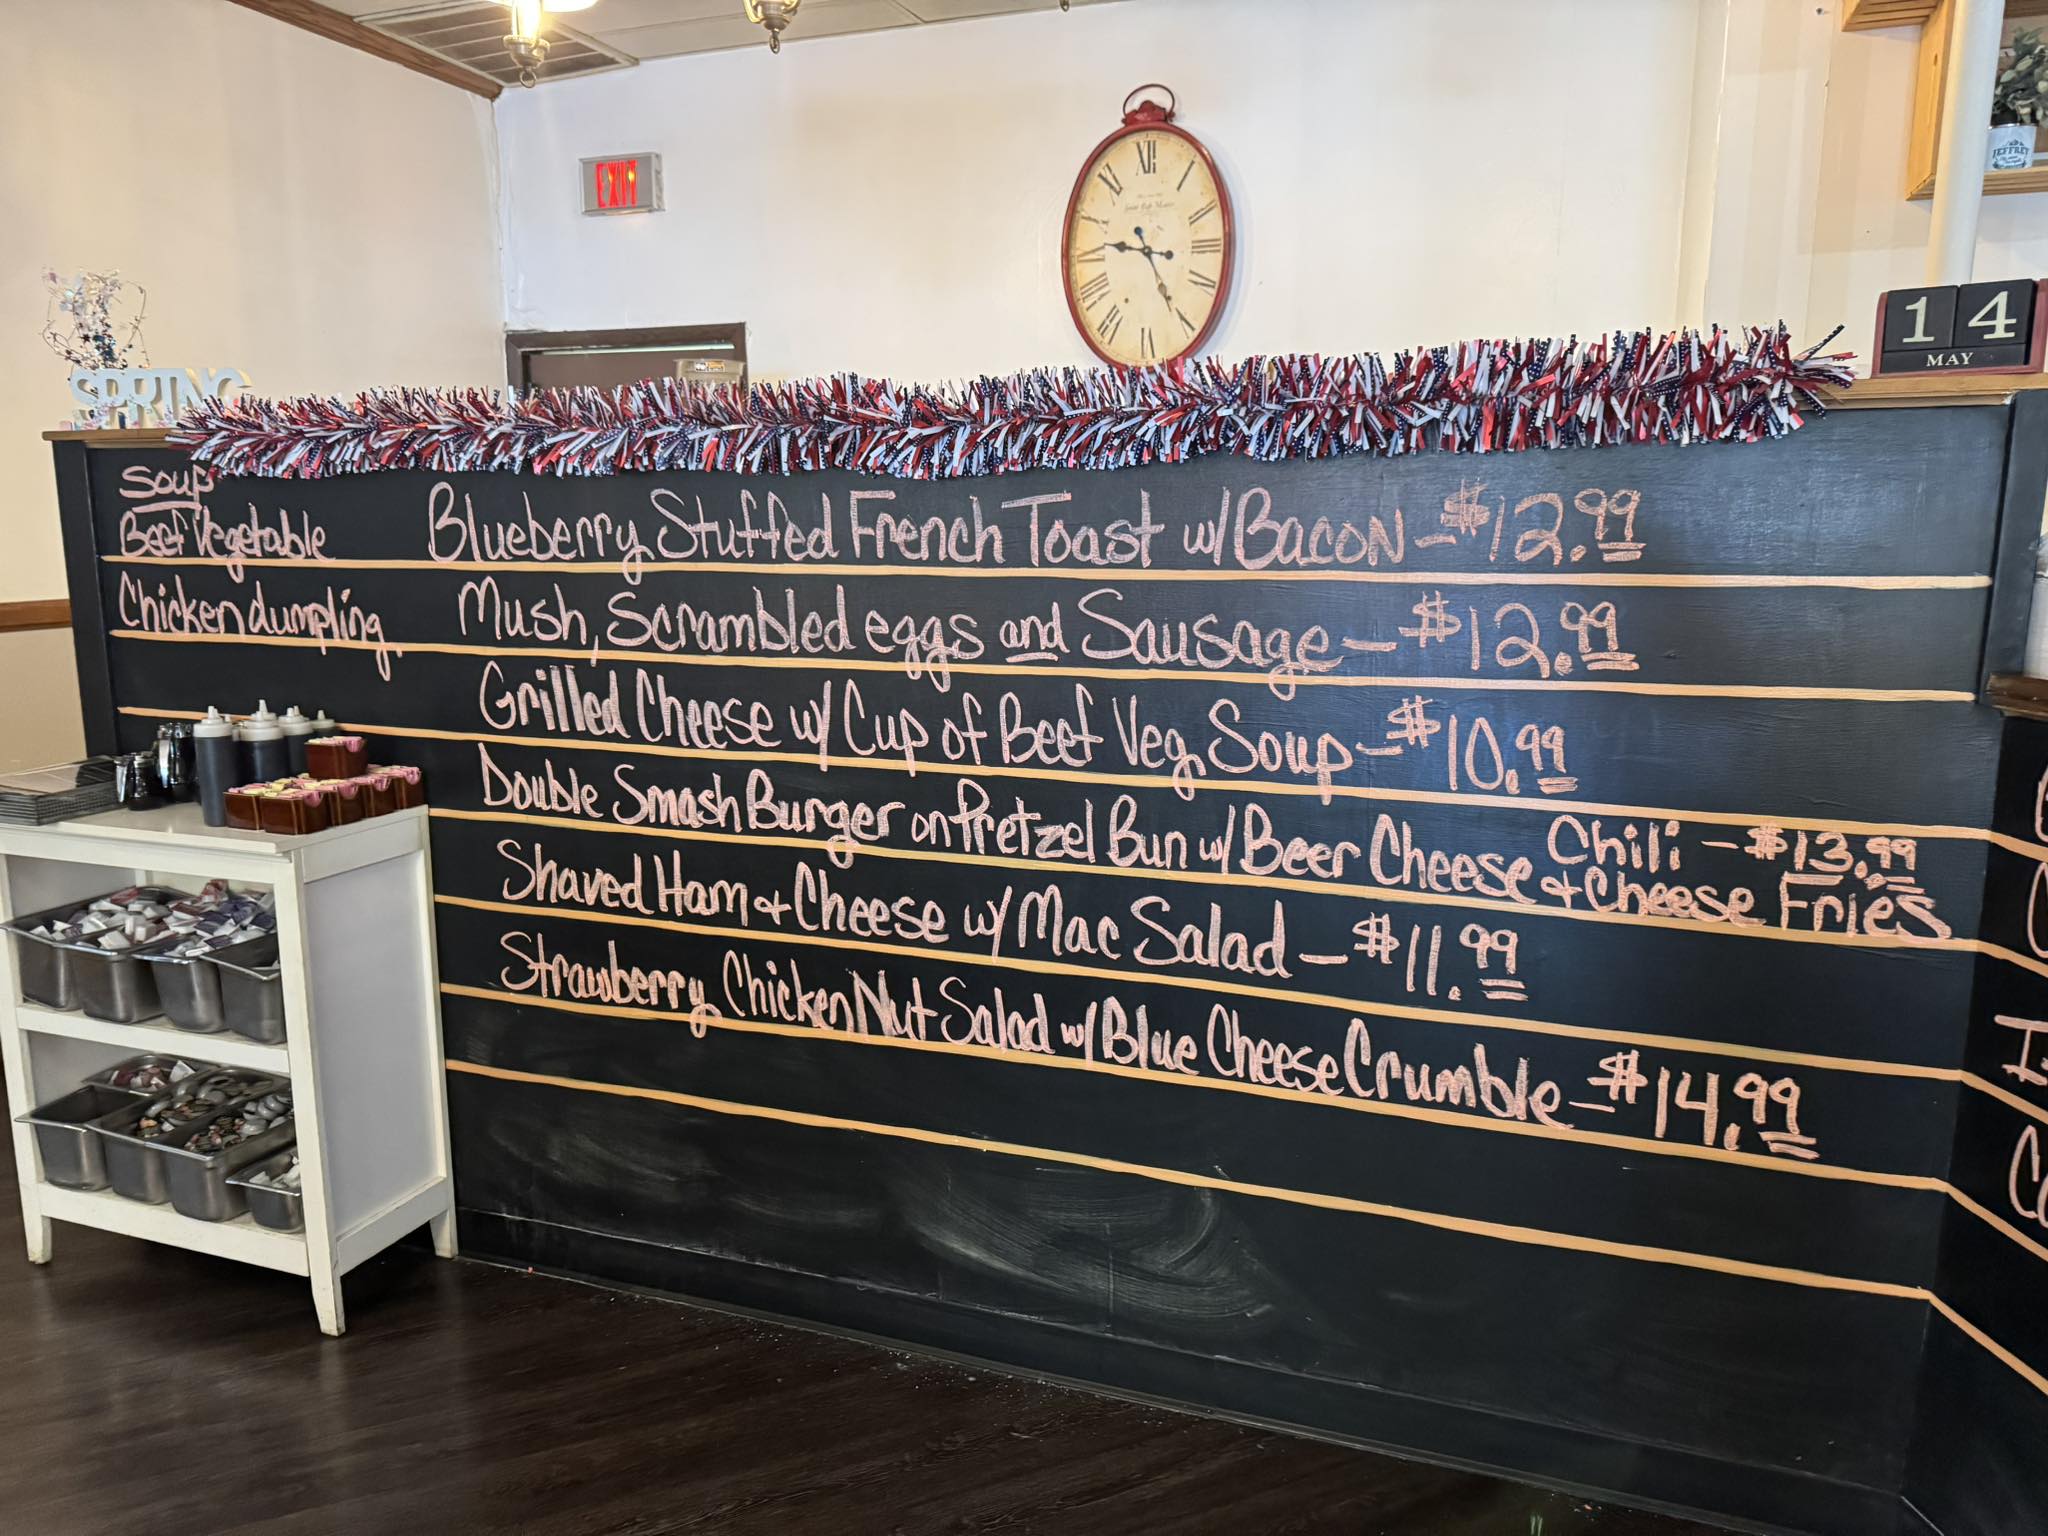 EXIT
XII
I
II
III
IIII
V
VI
VII
VIII
IX
X
XI
JEFFREY
14
MAY
SPRING
Soup
Beef Vegetable
Chicken dumpling
Blueberry Stuffed French Toast w/Bacon - $12.99
Mush, Scrambled eggs and Sausage - $12.99
Grilled Cheese w/ Cup of Beef Veg Soup - $10.99
Double Smash Burger on Pretzel Bun w/ Beer Cheese + Chili Cheese Fries - $13.99
Shaved Ham + Cheese w/ Mac Salad - $11.99
Strawberry Chicken Nut Salad w/ Blue Cheese Crumble - $14.99